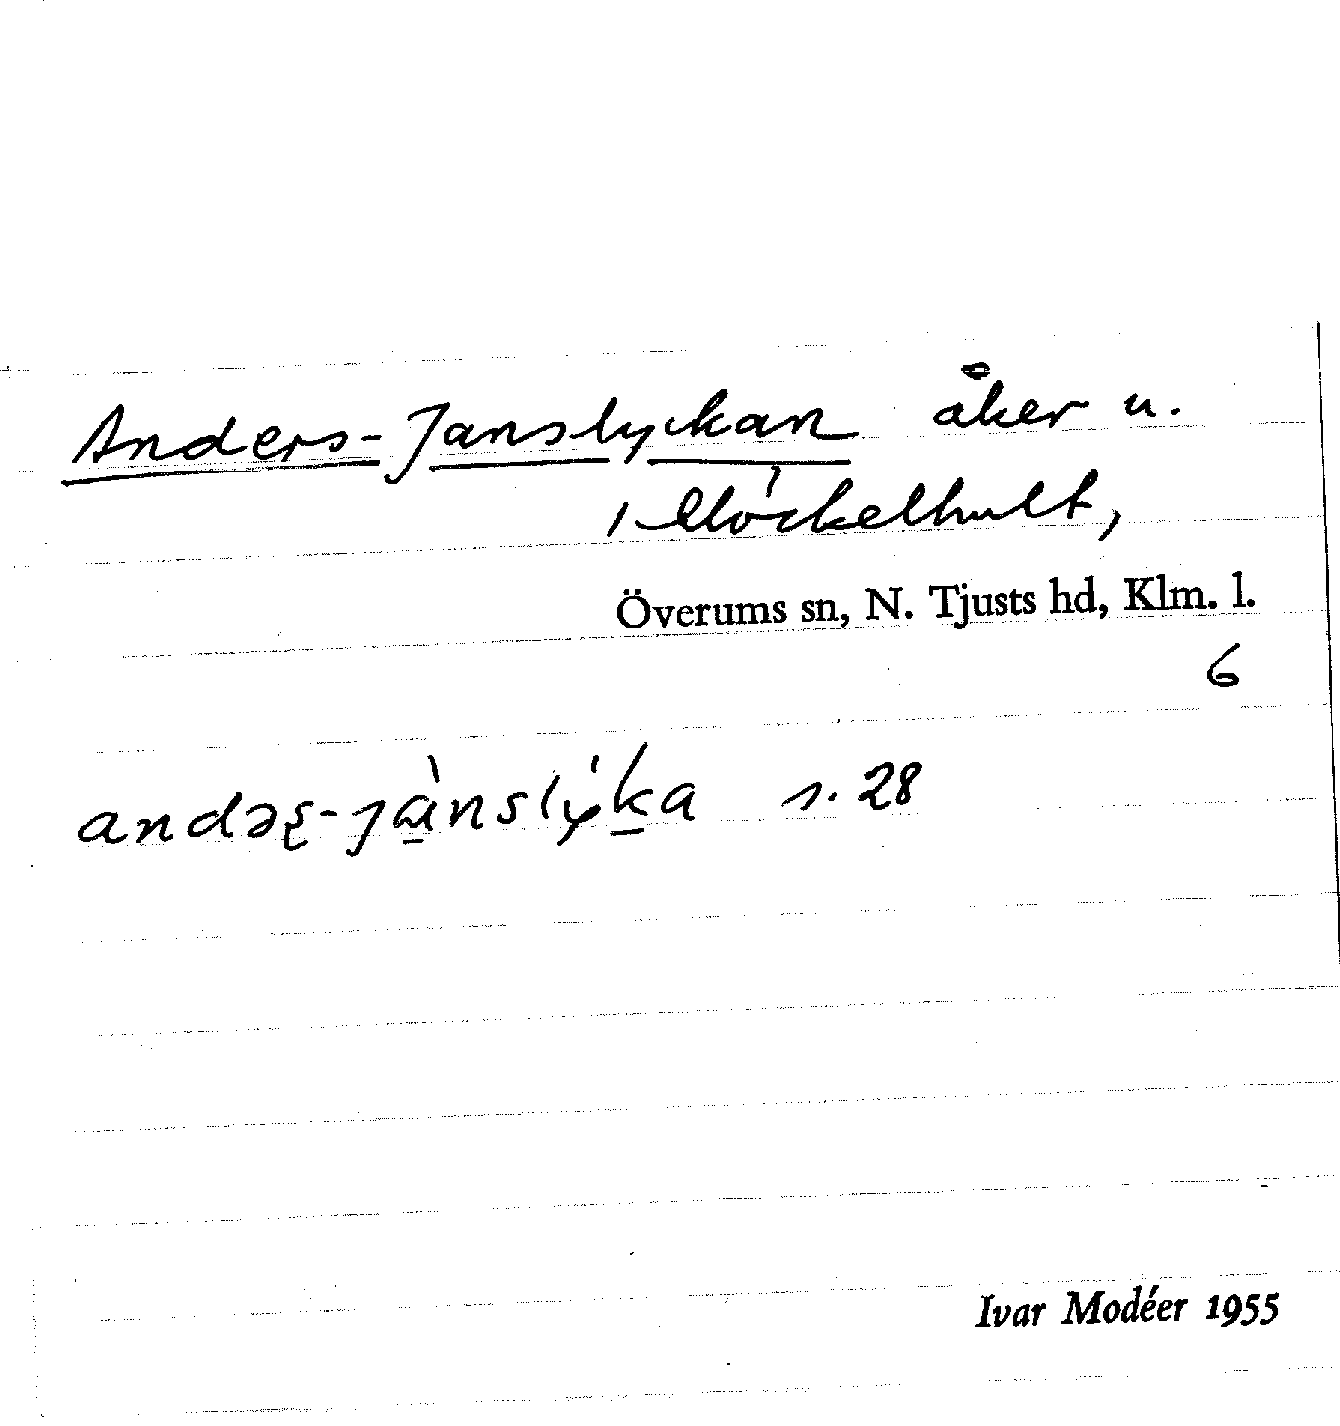 Anders-Janslyckan åker u.
Möckelhult,
Överums sn, N. Tjusts hd, Klm. l.
6
s. 28
Ivar Modéer 1955